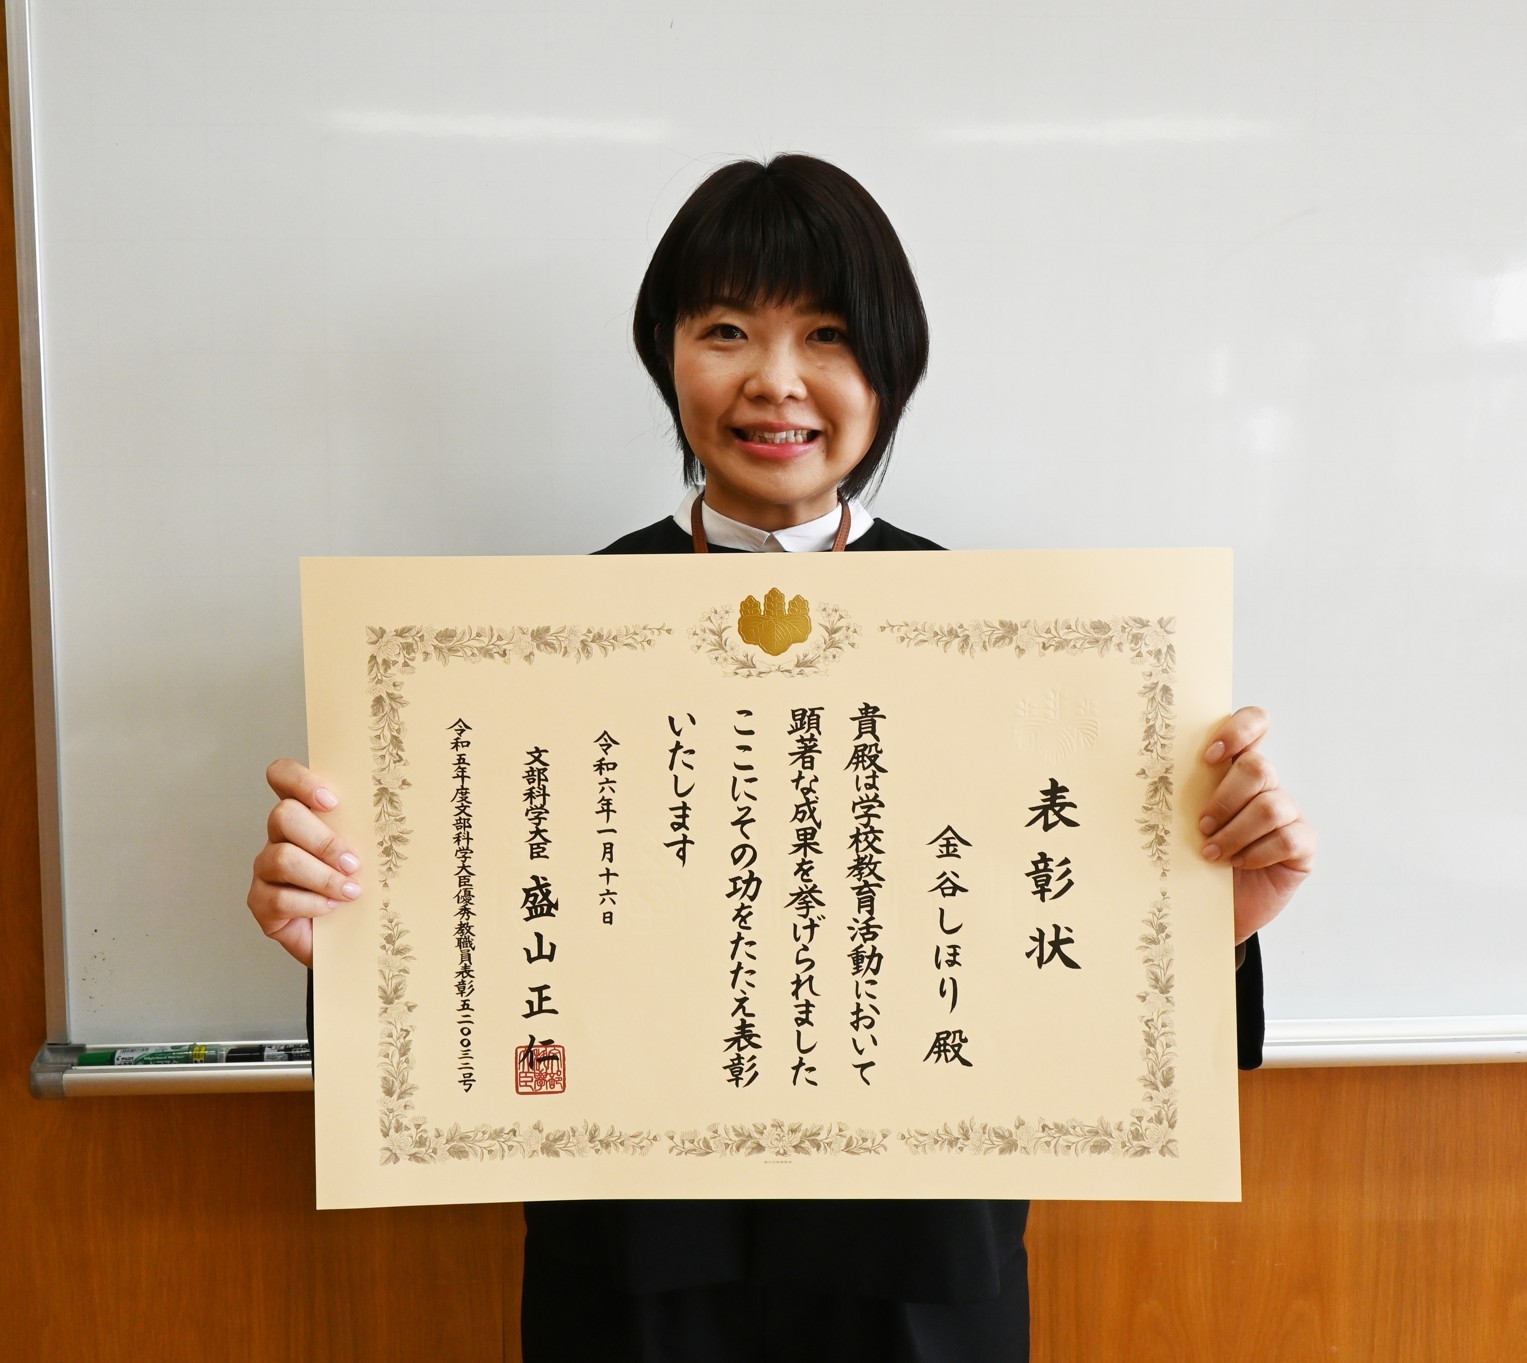 表彰状
金谷しほり殿
貴殿は学校教育活動において
顕著な成果を挙げられました
ここにその功をたたえ表彰
いたします
令和六年一月十六日
文部科学大臣 盛山正仁
令和五年度文部科学大臣優秀教職員表彰五二〇〇三二号